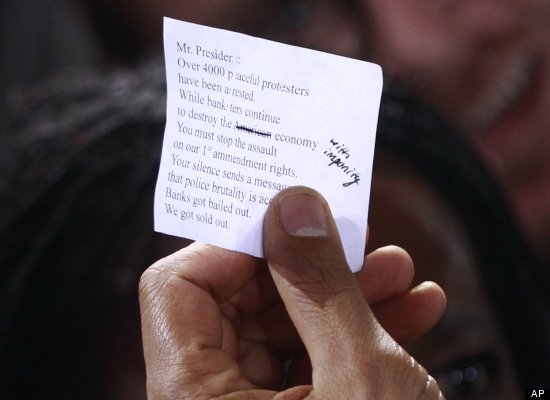 Mr. President:
Over 4000 peaceful protesters
have been arrested.
While banksters continue
to destroy the American economy
with
impunity
You must stop the assault
on our 1st ammendment rights.
Your silence sends a message
that police brutality is acc
Banks got bailed out.
We got sold out.
AP